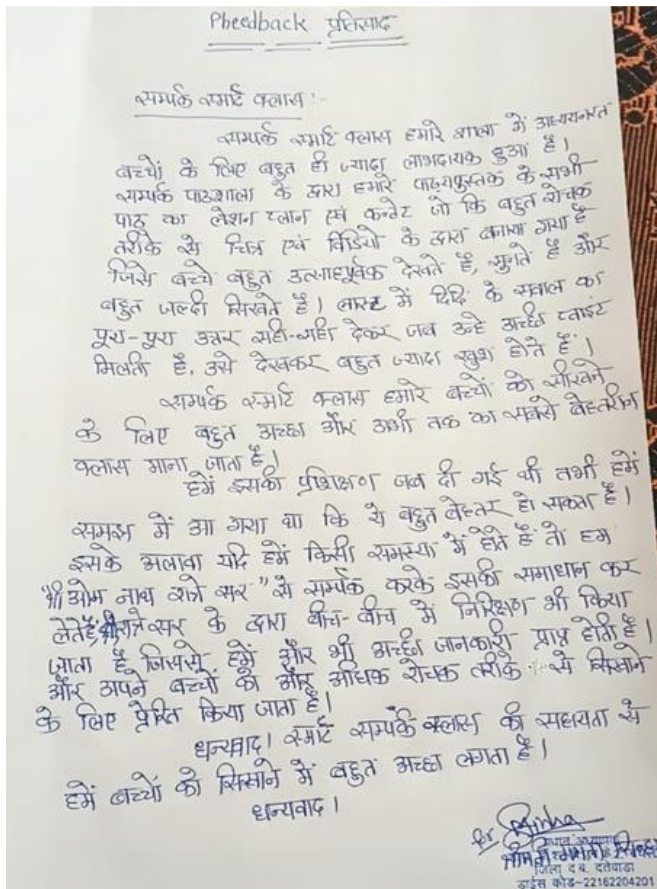 Pheedback प्रतिसाद
सम्पर्क स्मार्ट क्लास :-
सम्पर्क स्मार्ट क्लास हमारे शाला में अध्ययनरत
बच्चों के लिए बहुत ही ज्यादा लाभदायक हुआ है।
सम्पर्क पाठशाला के द्वारा हमारे पाठ्यपुस्तक के सभी
पाठ का लेशन प्लान एवं कन्टेट जो कि बहुत रोचक
तरीके से चित्र एवं विडियो के द्वारा बनाया गया है
जिसे बच्चे बहुत उत्साहपूर्वक देखते है, सुनते है और
बहुत जल्दी सिखते है। लास्ट में दिदि के सवाल का
पूरा-पूरा उत्तर सही-सही देकर जब उन्हे अच्छी प्वाइंट
मिलती है, उसे देखकर बहुत ज्यादा खुश होते है।
सम्पर्क स्मार्ट क्लास हमारे बच्चों को सीखने
के लिए बहुत अच्छा और अभी तक का सबसे बेहतरीन
क्लास माना जाता है।
हमें इसकी प्रशिक्षण जब दी गई थी तभी हमें
समझ में आ गया था कि ये बहुत बेहतर हो सकता है।
इसके अलावा यदि हमें किसी समस्या में होते हैं तो हम
"श्री ओम नाथ सर" से सम्पर्क करके इसकी समाधान कर
लेते है, सर के द्वारा बीच-बीच में निरिक्षण भी किया
जाता है जिससे हमें और भी अच्छी जानकारी प्राप्त होती है।
और अपने बच्चों को और अधिक रोचक तरीके से सिखाने
के लिए प्रेरित किया जाता है।
धन्यवाद। स्मार्ट सम्पर्क क्लास की सहायता से
हमें बच्चों को सिखाने में बहुत अच्छा लगता है।
धन्यवाद।
प्रधान अध्यापक
जिला द.ब. दंतेवाड़ा
डाईस कोड-22162204201